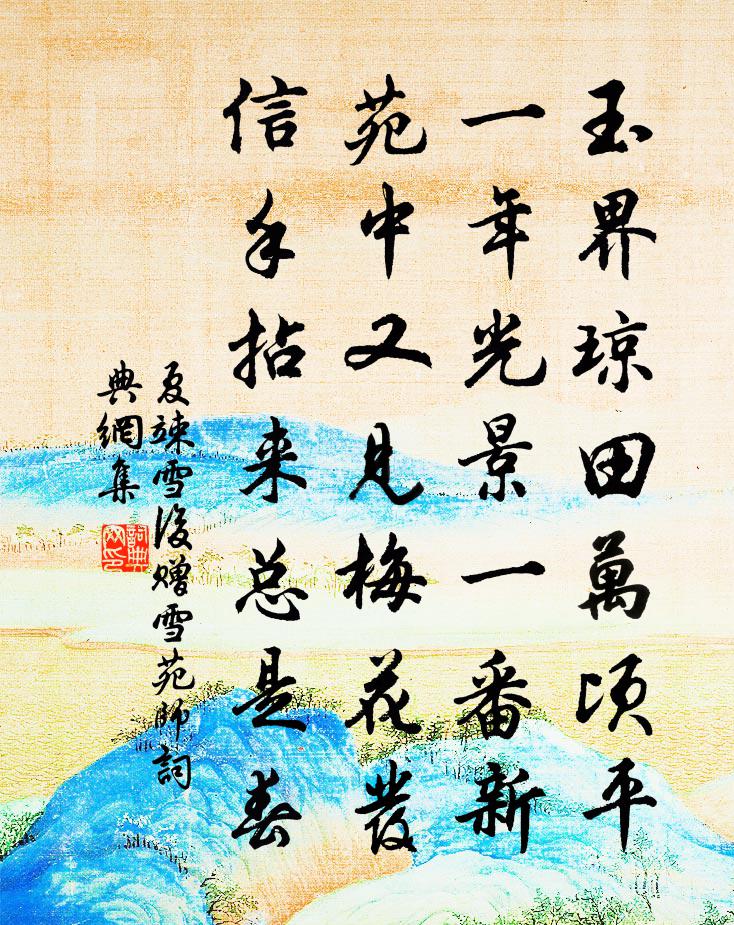 玉界琼田萬顷平
一年光景一番新
苑中又見梅花發
信手拈来总是春
夏竦雪後赠雪苑師詞
典網集
詞典